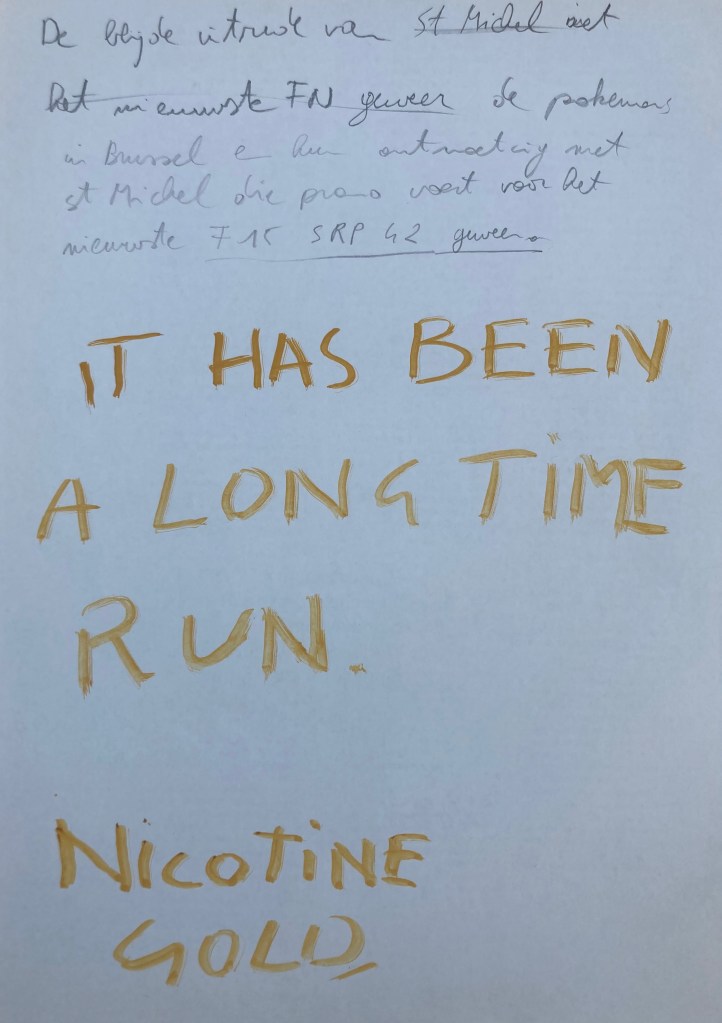 De blijde intrede van St Michel met
het nieuwste FN geweer de pokemons
in Brussel e hun ontmoeting met
st Michel die promo voert voor het
nieuwste F 15 SRP 42 geweer.
IT HAS BEEN
A LONG TIME
RUN.
NICOTINE
GOLD,